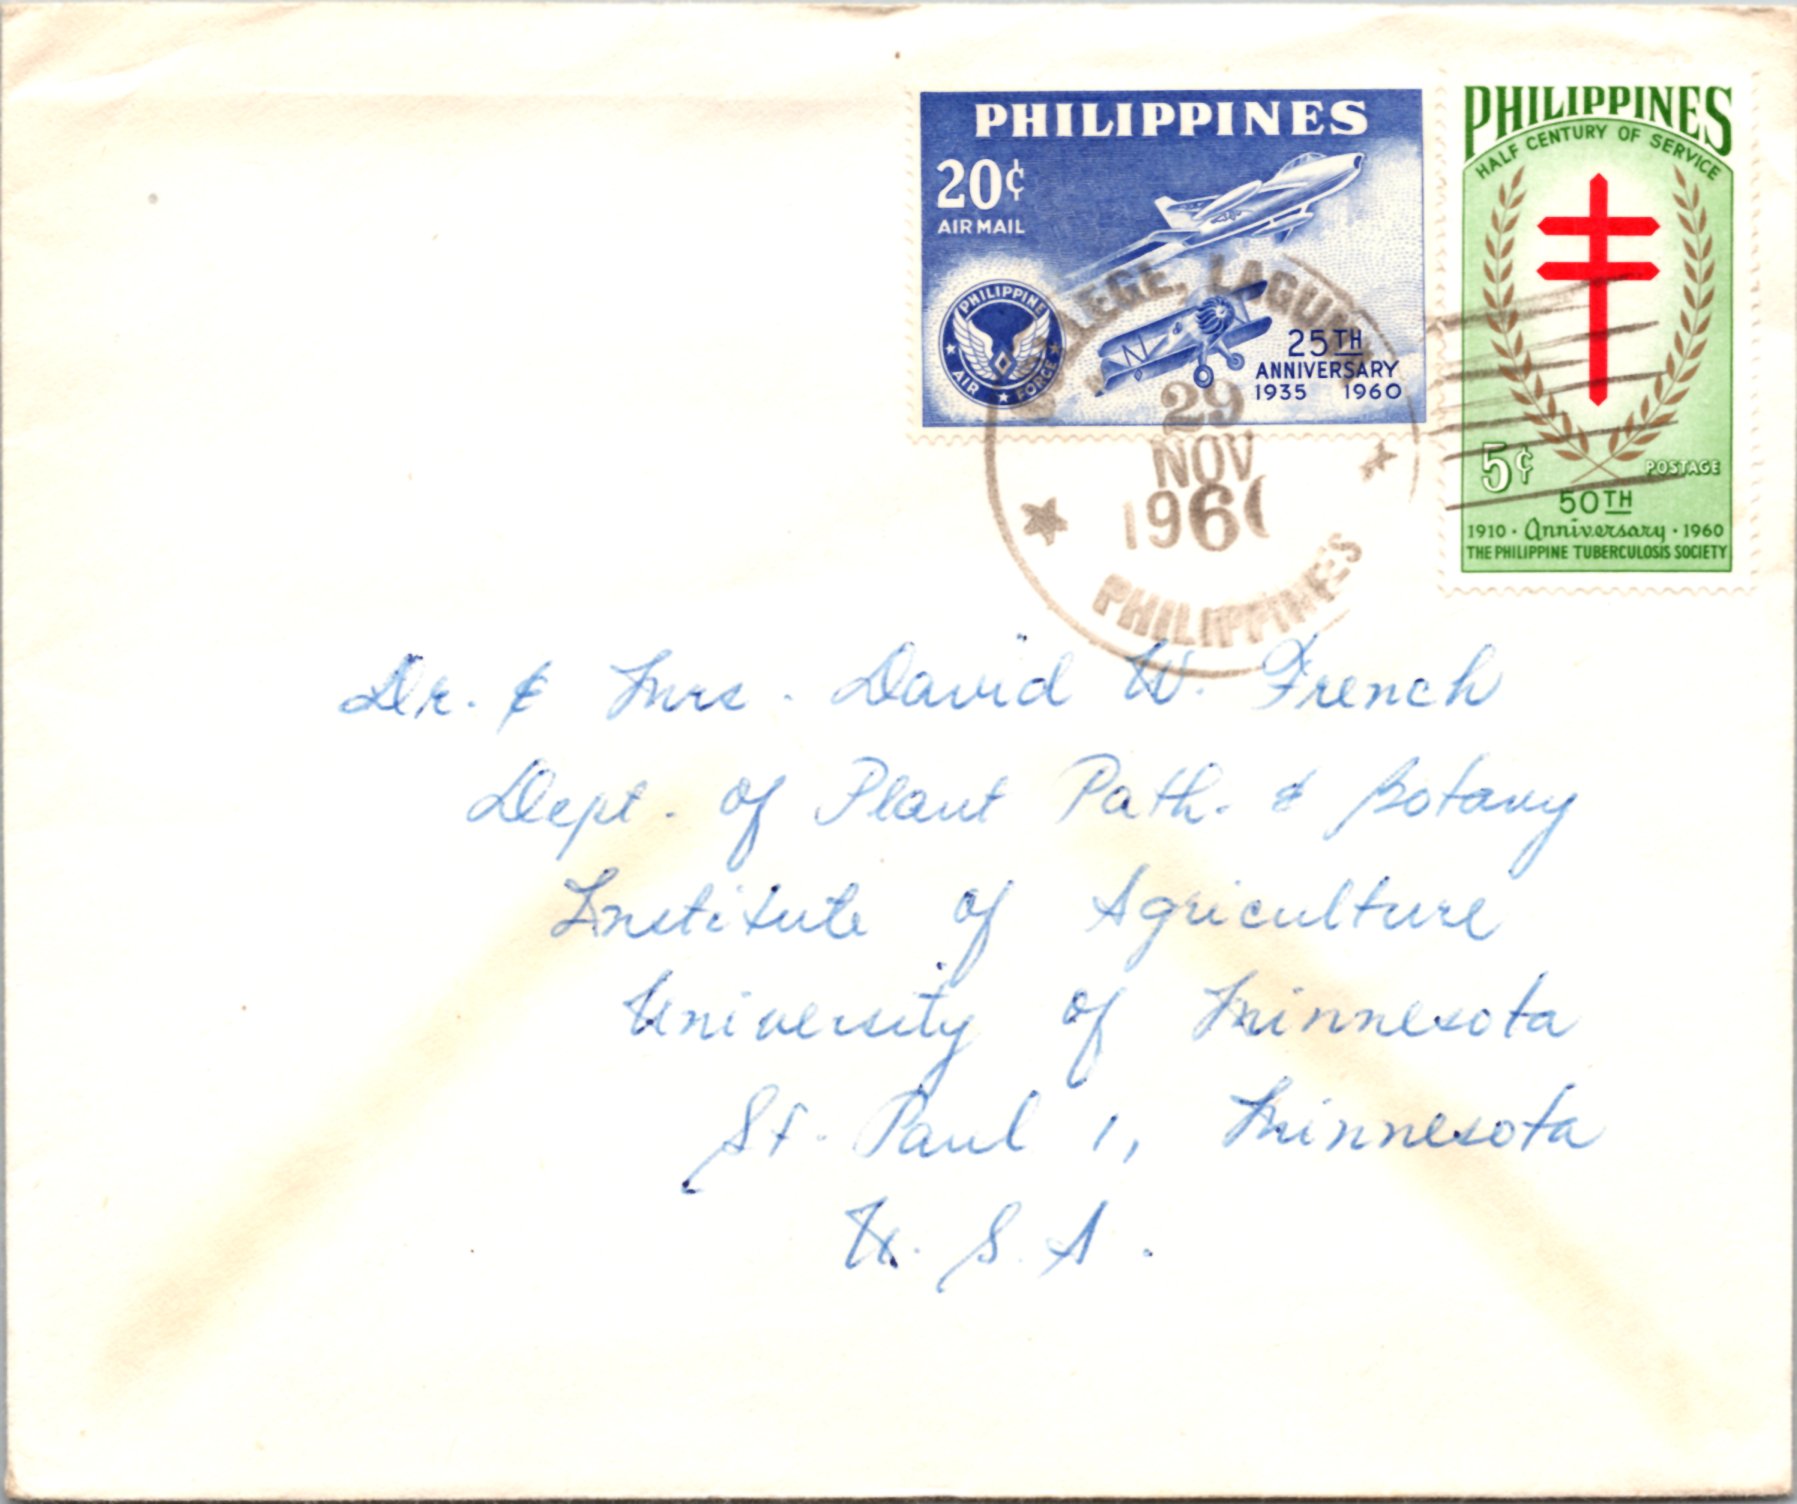 PHILIPPINES
20¢
AIR MAIL
PHILIPPINE
AIR ★ FORCE
25TH
ANNIVERSARY
1935 1960
PHILIPPINES
HALF CENTURY OF SERVICE
5¢
POSTAGE
50TH
1910 · Anniversary · 1960
THE PHILIPPINE TUBERCULOSIS SOCIETY
COLLEGE, LAGUNA
29
NOV
1960
PHILIPPINES
Dr. & Mrs. David W. French
Dept. of Plant Path. & Botany
Institute of Agriculture
University of Minnesota
St. Paul 1, Minnesota
U.S.A.